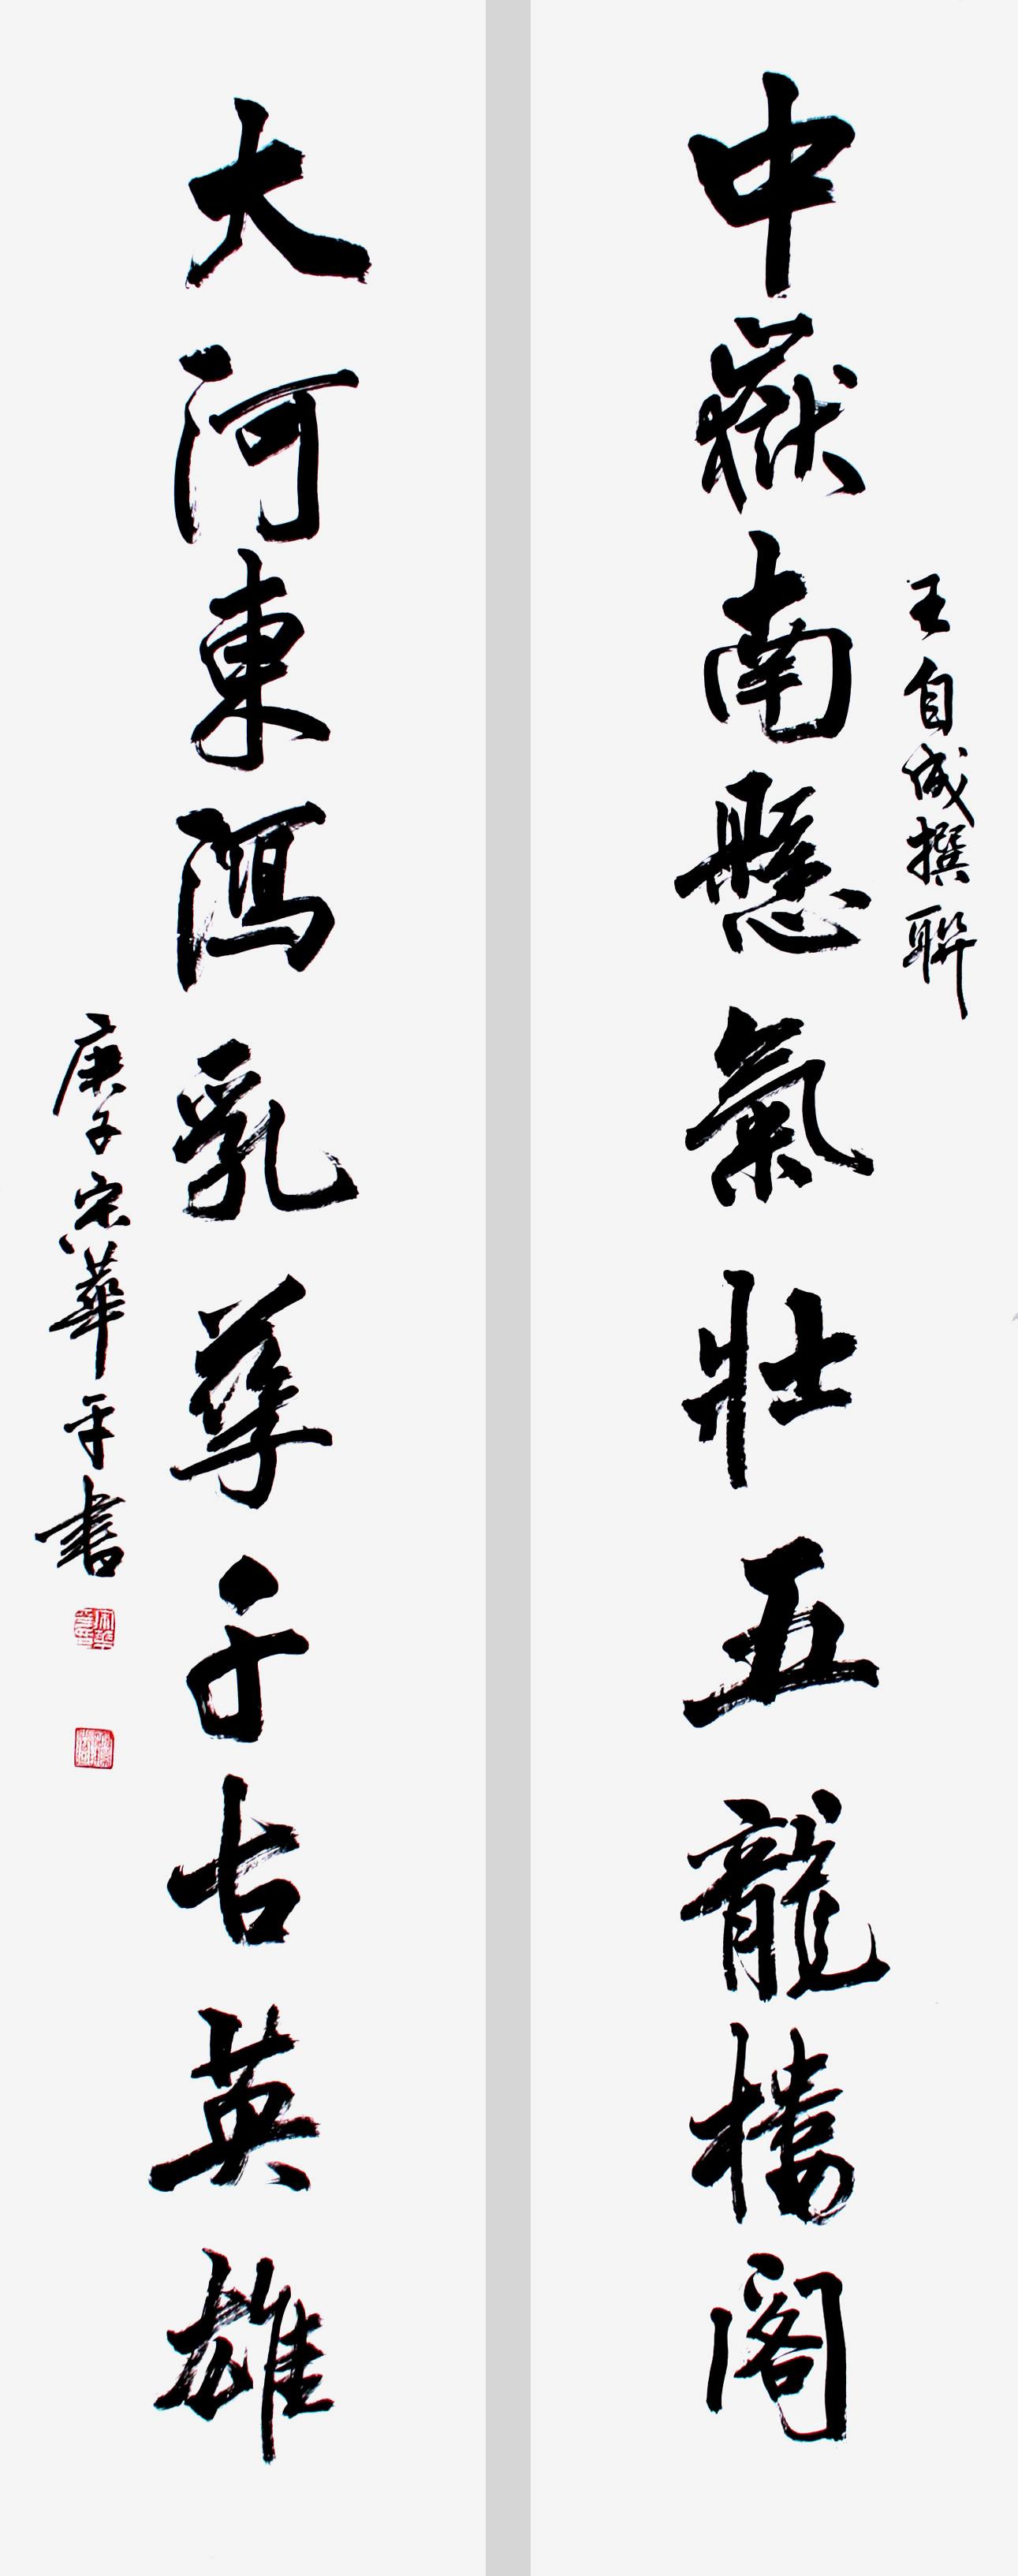 王自成撰聯
中嶽南懸氣壯五龍樓閣
大河東瀉乳孳千古英雄
庚子宋華平書